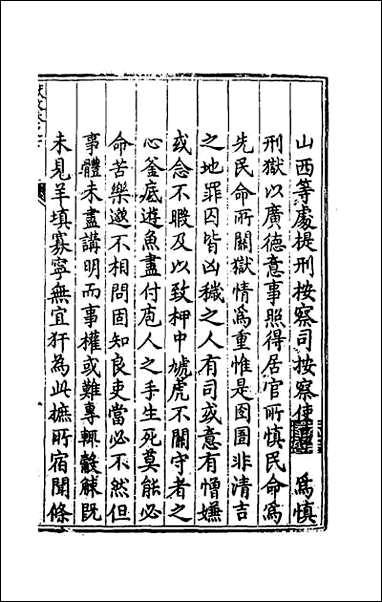 山西等處提刑按察司按察使 為慎
刑獄以廣德意事照得居官所慎民命爲
先民命所關獄情爲重惟是囹圄非清吉
之地罪囚皆凶穢之人有司或意有憎嫌
或念不暇及以致柙中虓虎不關守者之
心釜底遊魚盡付庖人之手生死莫能必
命苦樂邈不相問固知良吏當必不然但
事體未盡講明而事權或難專輒觳觫既
未見羊填寡寧無宜犴為此摭所宿聞條